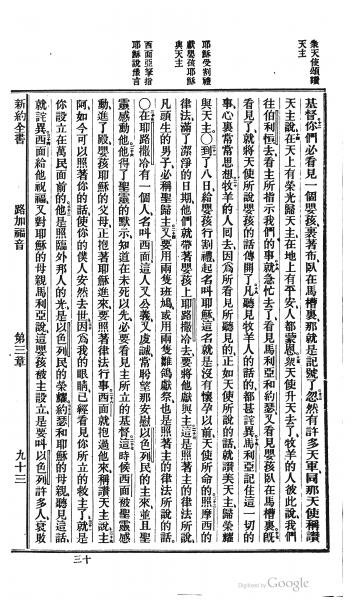 衆天使頌讚
天主
耶穌受割禮
獻嬰孩耶穌
與天主
西面亞拏指
耶穌說豫言
基督你們必看見一個嬰孩裹著布臥在馬槽裏那就是記號了忽然有許多天軍同那天使稱讚
天主說在天上有榮光歸天主在地上有平安人都蒙恩衆天使升天去了牧羊的人彼此說我們
往伯利恒去看主所指示我們的事就急忙去了看見馬利亞和約瑟又看見嬰孩臥在馬槽裏旣
看見了就將天使所說嬰孩的話傳開了凡聽見牧羊人的話的都甚詫異馬利亞記住這一切的
事心裏常常思想牧羊的人回去因爲所看見所聽見的正如天使所說的話就讚美天主歸榮耀
與天主○到了八日給嬰孩行割禮起名叫耶穌這名就是沒有懷孕以前天使所命的照摩西的
律法滿了潔淨的日期他們就帶著嬰孩上耶路撒冷去要將他獻與主這是照著主的律法所說
凡頭生的男子必稱聖歸主又要用兩隻班鳩或用兩隻雛鴿獻祭也是照著主的律法所說的話
○在耶路撒冷有一個人名叫西面這人又公義又虔誠常盼望那安慰以色列民的主來並且聖
靈感動他他得了聖靈的默示知道在未死以先必要看見主所立的基督這時候西面被聖靈感
動進了殿嬰孩耶穌的父母正抱著耶穌進來要照著律法行事西面就抱過他來稱讚天主說主
阿如今可以照著你的話使你的僕人安然去世因爲我的眼睛已經看見你所立的救主了就是
你設立在萬民面前的他是照臨外邦人的光是以色列民的榮耀約瑟和耶穌的母親聽見這話
就詫異西面給他祝福又對耶穌的母親馬利亞說這嬰孩被主設立是要叫以色列許多人衰敗
新約全書 路加福音 第三章 九十三
三十
Digitized by Google